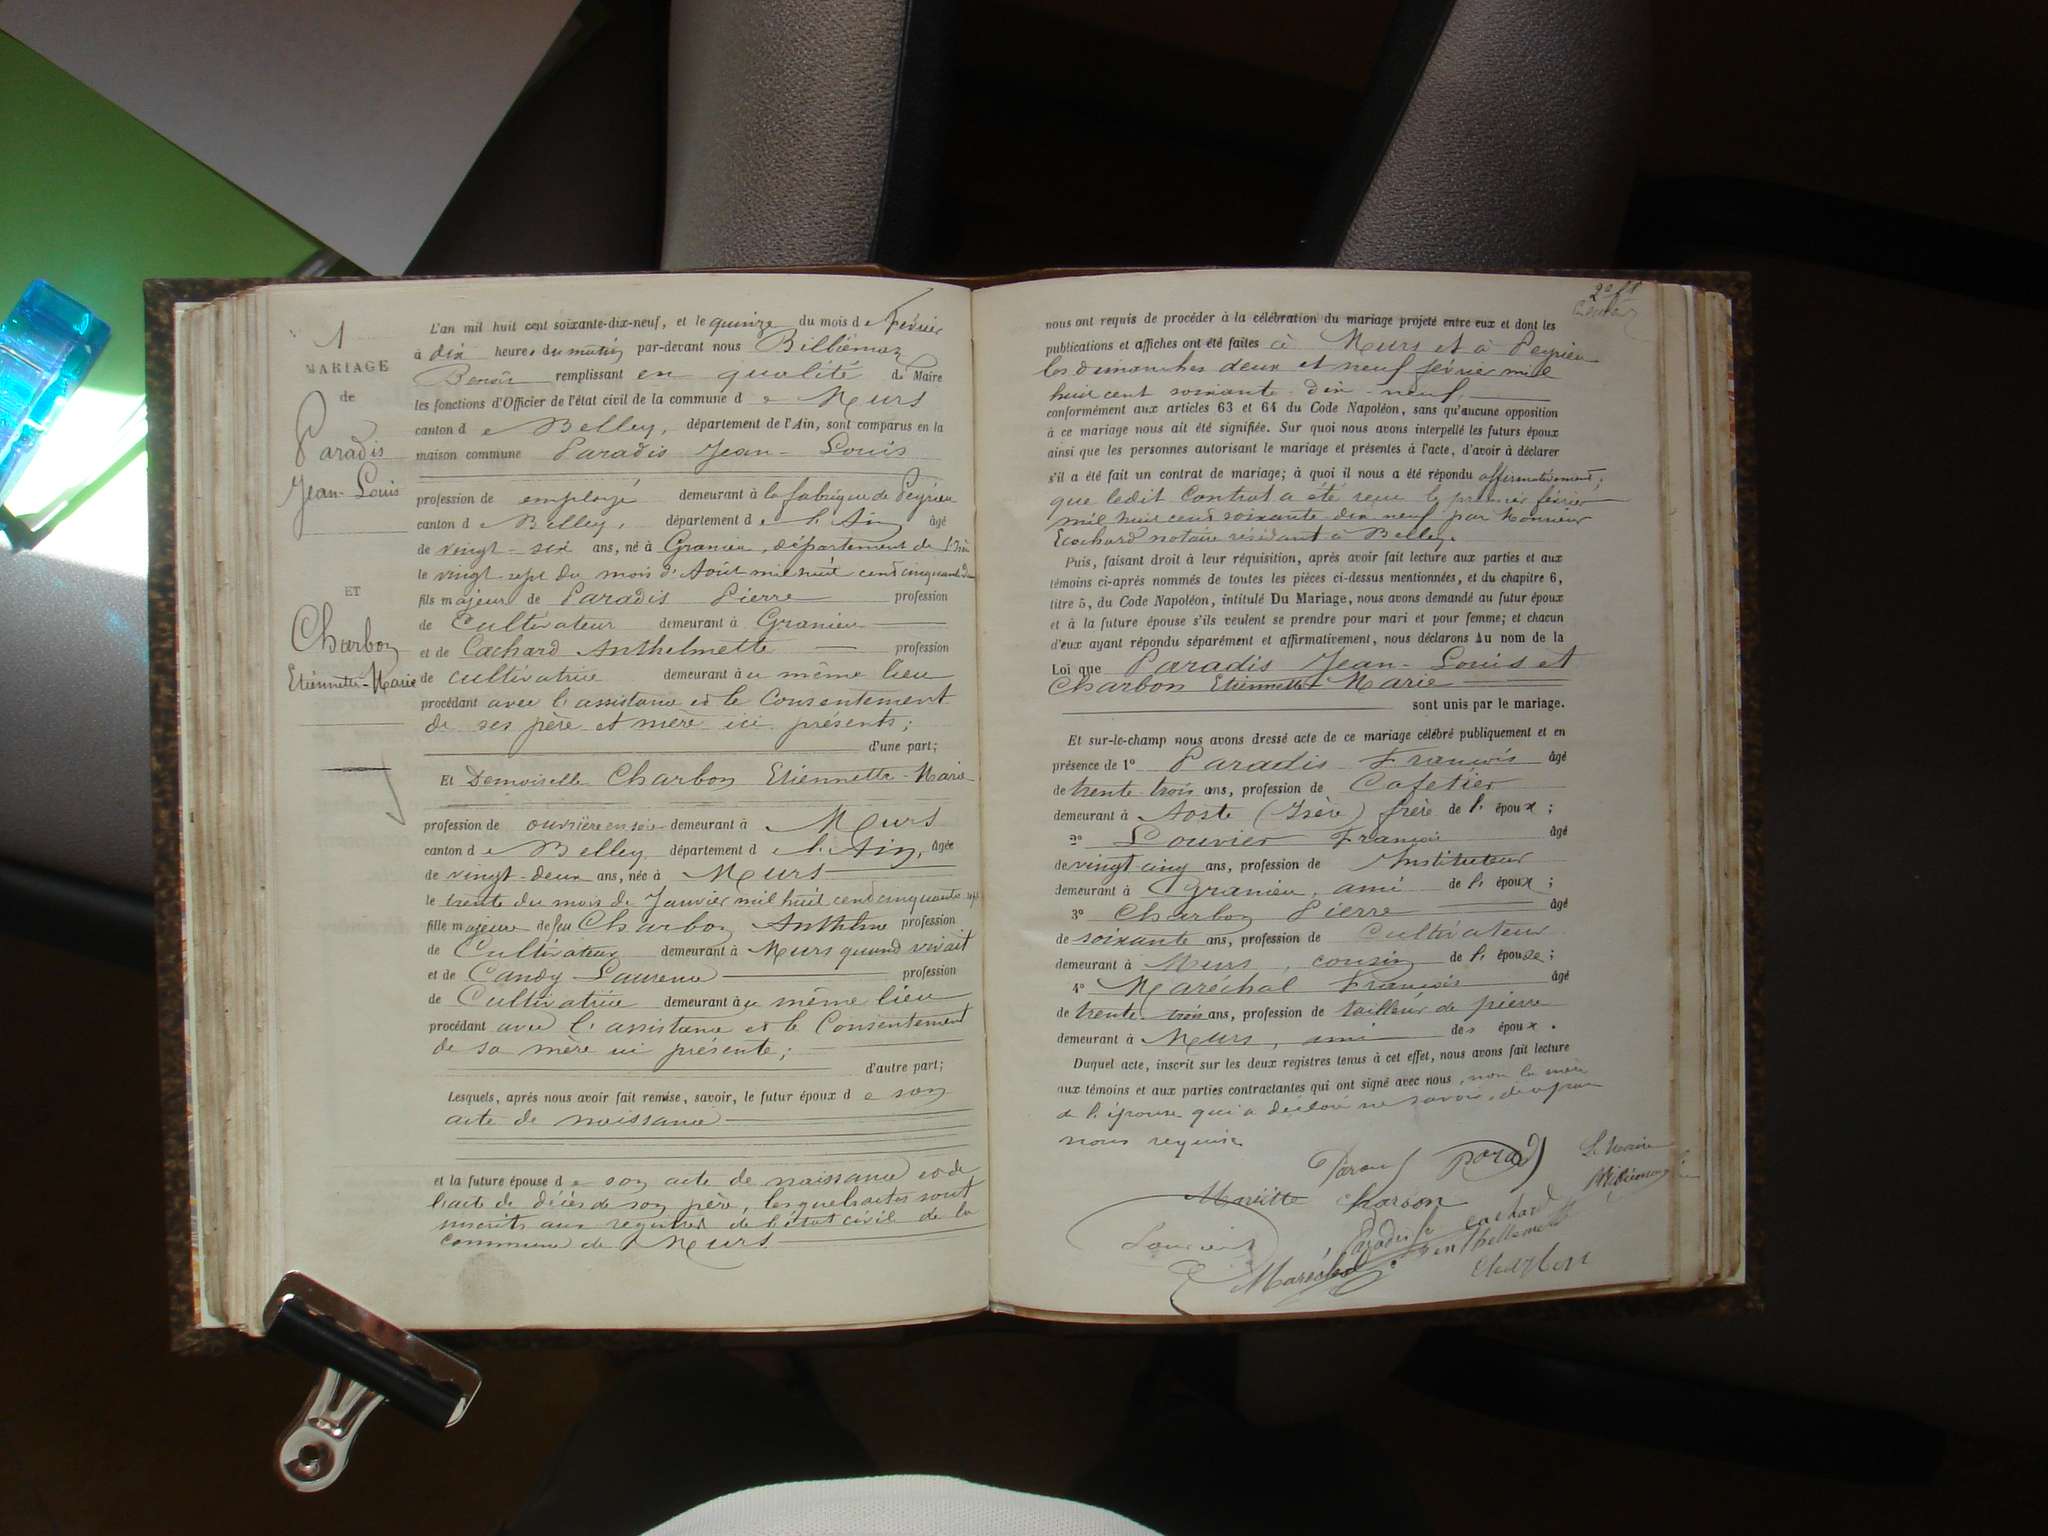 1
MARIAGE
de
Paradis
Jean-Louis
ET
Charbon
Etiennette-Marie
L'an mil huit cent soixante-dix-neuf, et le quinze du mois de Février
à dix heures du matin par-devant nous Billiémaz
Benoît remplissant en qualité de Maire
les fonctions d'Officier de l'état civil de la commune de Murs
canton de Belley, département de l'Ain, sont comparus en la
maison commune Paradis Jean-Louis
profession de employé demeurant à la fabrique de Peyrieu
canton de Belley, département de l'Ain âgé
de vingt-six ans, né à Granieu, département de l'Isère
le vingt-sept du mois d'Août mil huit cent cinquante deux
fils majeur de Paradis Pierre profession
de Cultivateur demeurant à Granieu
et de Cachard Anthelmette profession
de cultivatrice demeurant au même lieu
procédant avec l'assistance et le Consentement
de ses père et mère ici présents;
d'une part;
Et Demoiselle Charbon Etiennette-Marie
profession de ouvrière en soie demeurant à Murs
canton de Belley département de l'Ain, âgée
de vingt-deux ans, née à Murs
le trente du mois de Janvier mil huit cent cinquante sept
fille majeure de feu Charbon Anthelme profession
de Cultivateur demeurant à Murs quand vivait
et de Candy Laurence profession
de Cultivatrice demeurant au même lieu
procédant avec l'assistance et le Consentement
de sa mère ici présente;
d'autre part;
Lesquels, après nous avoir fait remise, savoir, le futur époux de son
acte de naissance
et la future épouse de son acte de naissance et de
l'acte de décès de son père, lesquels actes sont
inscrits aux registres de l'état civil de la
commune de Murs
nous ont requis de procéder à la célébration du mariage projeté entre eux et dont les
publications et affiches ont été faites à Murs et à Peyrieu
les dimanches deux et neuf février mil
huit cent soixante-dix-neuf,
conformément aux articles 63 et 64 du Code Napoléon, sans qu'aucune opposition
à ce mariage nous ait été signifiée. Sur quoi nous avons interpellé les futurs époux
ainsi que les personnes autorisant le mariage et présentes à l'acte, d'avoir à déclarer
s'il a été fait un contrat de mariage; à quoi il nous a été répondu affirmativement;
que ledit Contrat a été reçu le premier février
mil huit cent soixante-dix neuf par Monsieur
Ecochard notaire résidant à Belley.
Puis, faisant droit à leur réquisition, après avoir fait lecture aux parties et aux
témoins ci-après nommés de toutes les pièces ci-dessus mentionnées, et du chapitre 6,
titre 5, du Code Napoléon, intitulé Du Mariage, nous avons demandé au futur époux
et à la future épouse s'ils veulent se prendre pour mari et pour femme; et chacun
d'eux ayant répondu séparément et affirmativement, nous déclarons Au nom de la
Loi que Paradis Jean-Louis et
Charbon Etiennette Marie
sont unis par le mariage.
Et sur-le-champ nous avons dressé acte de ce mariage célébré publiquement et en
présence de 1º Paradis François âgé
de trente-trois ans, profession de Cafetier
demeurant à Aoste (Isère) frère de l'époux;
2º Louvier François âgé
de vingt cinq ans, profession de Instituteur
demeurant à Granieu, ami de l'époux;
3º Charbon Pierre âgé
de soixante ans, profession de Cultivateur
demeurant à Murs, cousin de l'épouse;
4º Maréchal François âgé
de trente-trois ans, profession de tailleur de pierre
demeurant à Murs, ami des époux.
Duquel acte, inscrit sur les deux registres tenus à cet effet, nous avons fait lecture
aux témoins et aux parties contractantes qui ont signé avec nous, non la mère
de l'épouse qui a déclaré ne savoir, de ce par
nous requise
Paradis Le Maire
Mariette Charbon Billiémaz
Louvier Paradis cachard
Maréchal anthelmette
Charbon